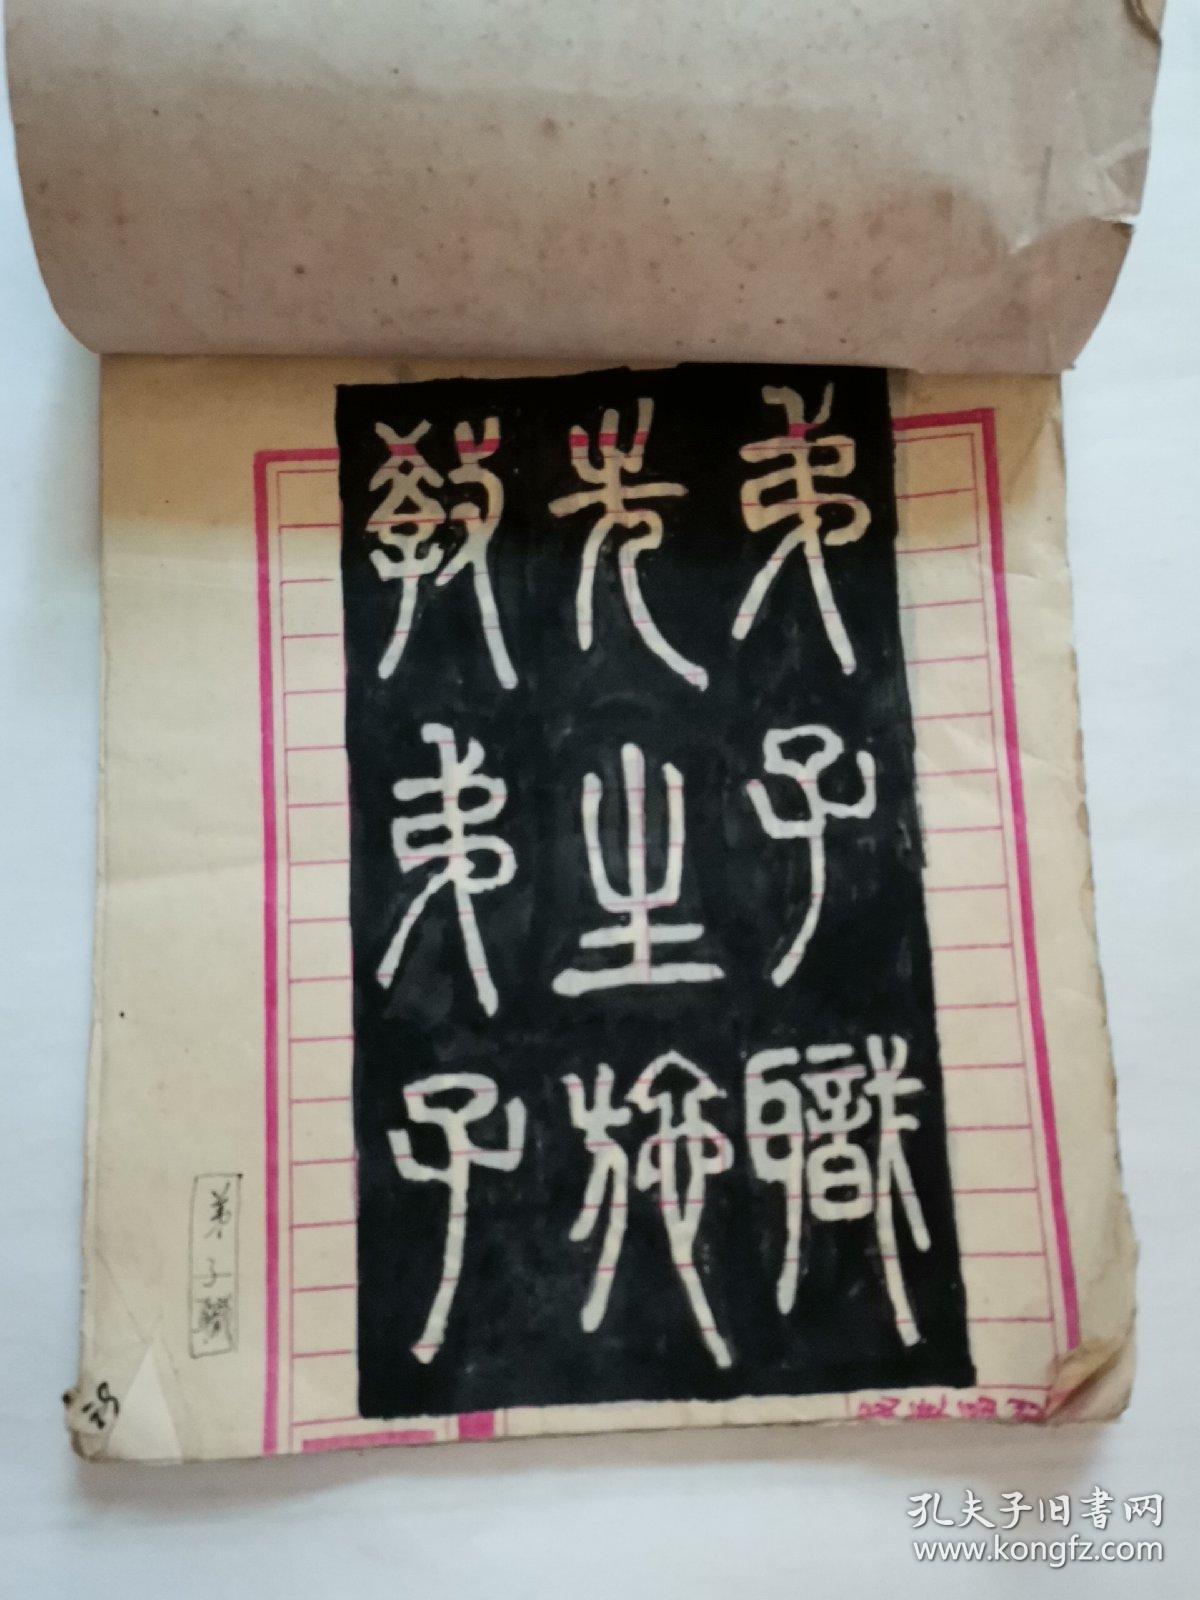 弟子職
先生施
教弟子
弟子職
孔夫子旧书网
www.kongfz.com